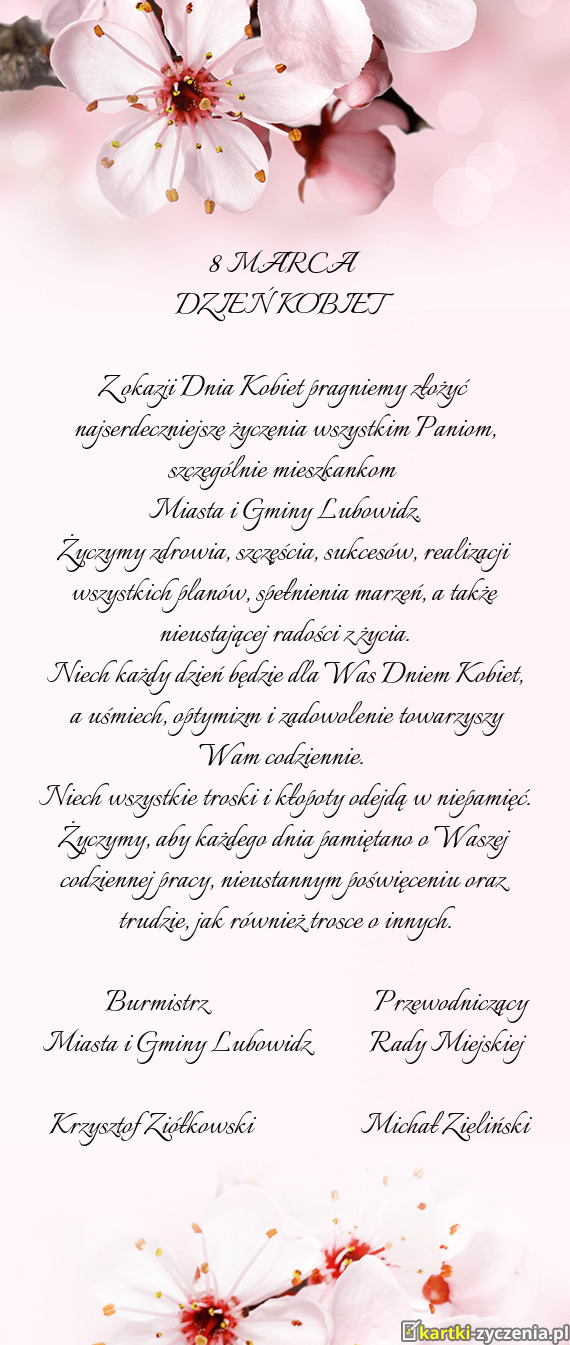 8 MARCA
DZIEŃ KOBIET
Z okazji Dnia Kobiet pragniemy złożyć
najserdeczniejsze życzenia wszystkim Paniom,
szczególnie mieszkankom
Miasta i Gminy Lubowidz.
Życzymy zdrowia, szczęścia, sukcesów, realizacji
wszystkich planów, spełnienia marzeń, a także
nieustającej radości z życia.
Niech każdy dzień będzie dla Was Dniem Kobiet,
a uśmiech, optymizm i zadowolenie towarzyszy
Wam codziennie.
Niech wszystkie troski i kłopoty odejdą w niepamięć.
Życzymy, aby każdego dnia pamiętano o Waszej
codziennej pracy, nieustannym poświęceniu oraz
trudzie, jak również trosce o innych.
Burmistrz Przewodniczący
Miasta i Gminy Lubowidz Rady Miejskiej
Krzysztof Ziółkowski Michał Zieliński
kartki-zyczenia.pl